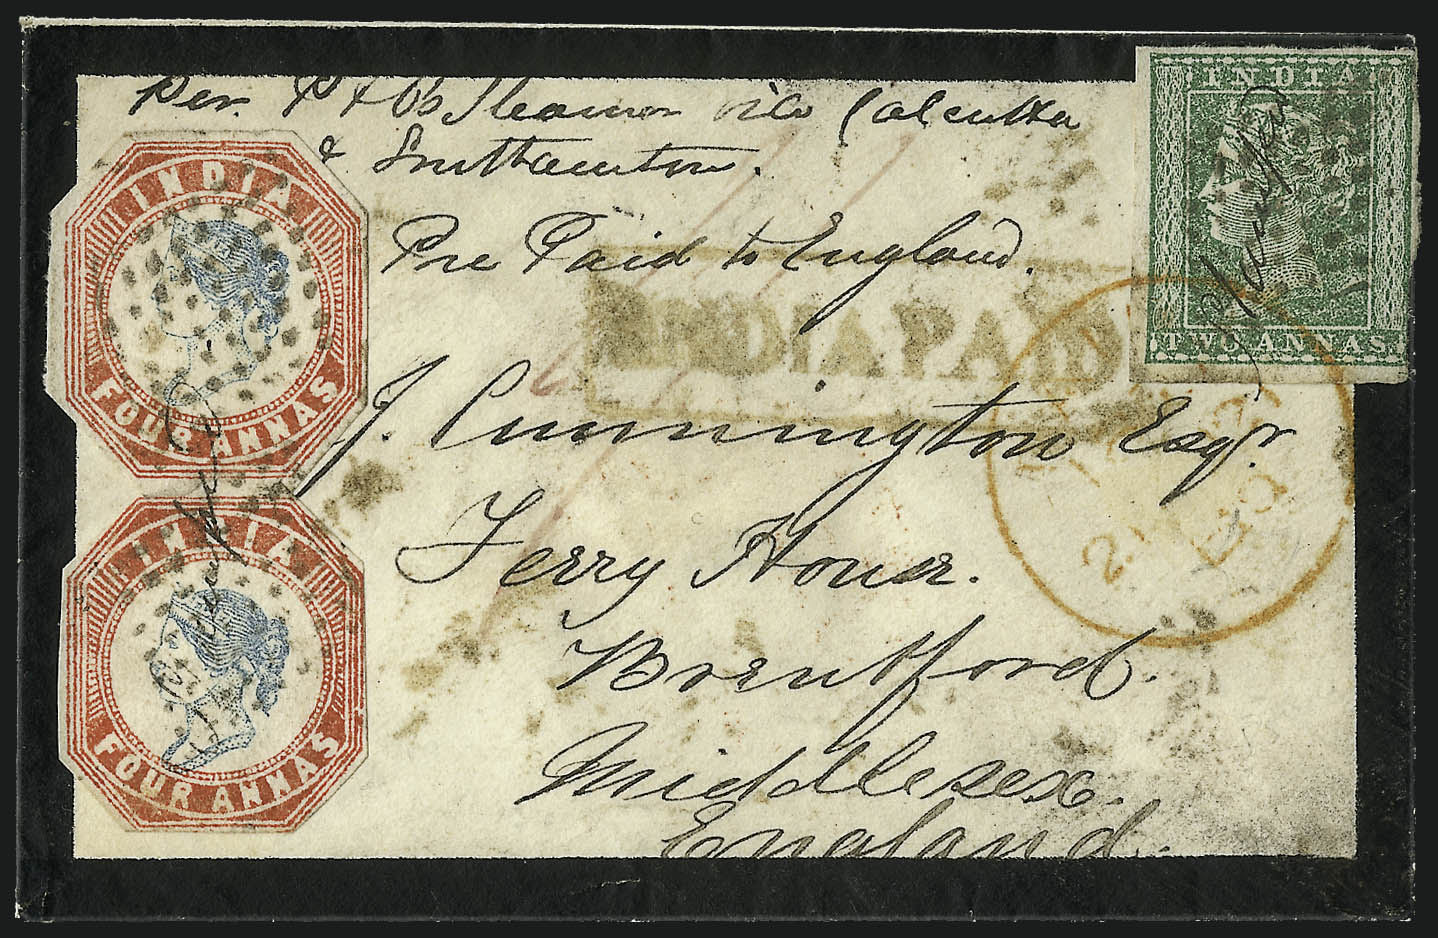 Per P & O's Steamer via Calcutta
& Southamton.
Pre Paid to England.
INDIA PAID
J. Cunnington Esqr.
Ferry House.
Brentford.
Middlesex.
England.
INDIA
FOUR ANNAS
INDIA
FOUR ANNAS
INDIA
TWO ANNAS
PAID
21